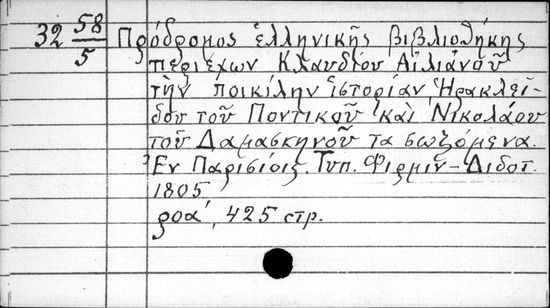 32 58/5 Πρόδρομος ἑλληνικῆς βιβλιοθήκης
περιέχων Κλαυδίου Αἰλιανοῦ
τὴν ποικίλην ἱστορίαν Ἡρακλεί-
δου τοῦ Ποντικοῦ καὶ Νικολάου
τοῦ Δαμασκηνοῦ τα σωζόμενα.
Ἐν Παρισίοις. Τυπ. Φιρμιν-Διδοτ.
1805
ροα', 425 стр.